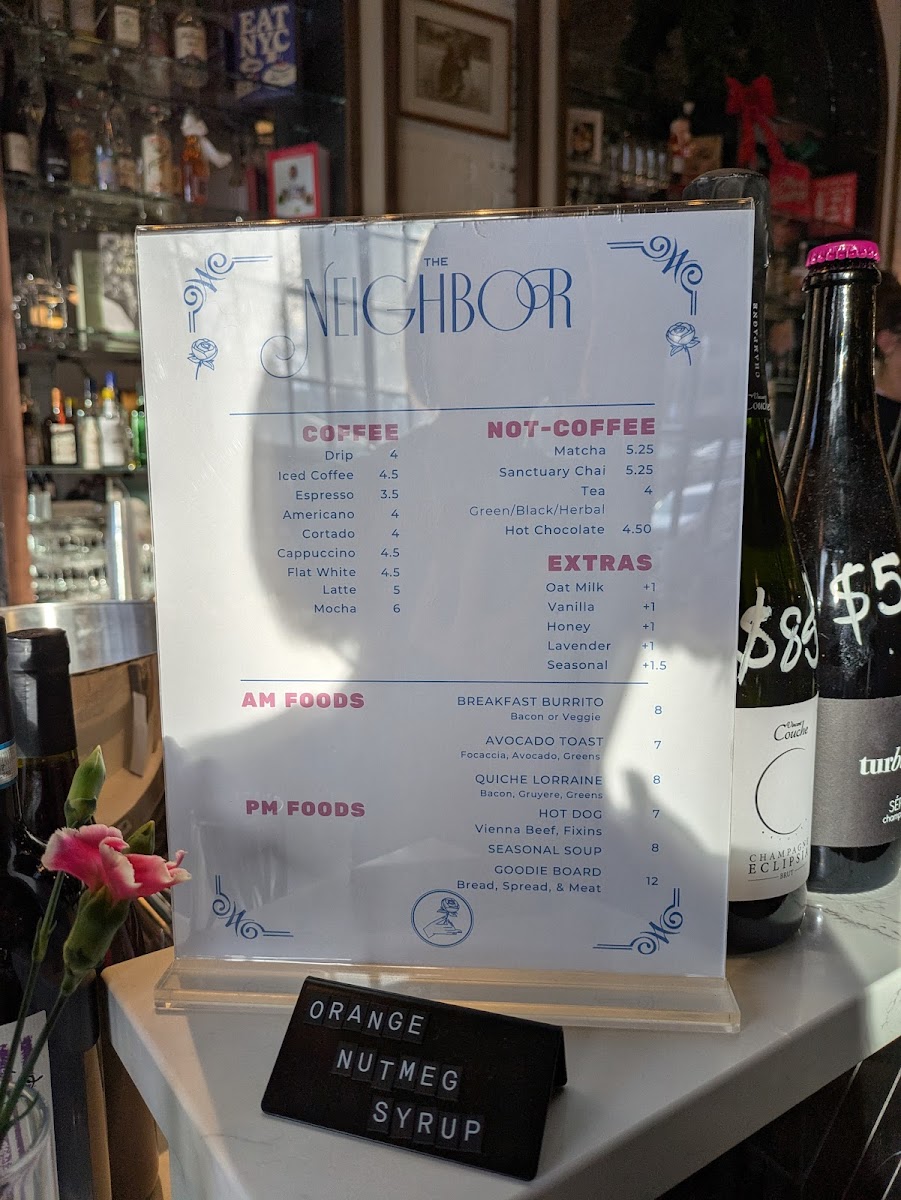 EAT
NYC
THE
NEIGHBOR
COFFEE
Drip 4
Iced Coffee 4.5
Espresso 3.5
Americano 4
Cortado 4
Cappuccino 4.5
Flat White 4.5
Latte 5
Mocha 6
NOT-COFFEE
Matcha 5.25
Sanctuary Chai 5.25
Tea 4
Green/Black/Herbal
Hot Chocolate 4.50
EXTRAS
Oat Milk +1
Vanilla +1
Honey +1
Lavender +1
Seasonal +1.5
AM FOODS
BREAKFAST BURRITO 8
Bacon or Veggie
AVOCADO TOAST 7
Focaccia, Avocado, Greens
QUICHE LORRAINE 8
Bacon, Gruyere, Greens
PM FOODS
HOT DOG 7
Vienna Beef, Fixins
SEASONAL SOUP 8
GOODIE BOARD 12
Bread, Spread, & Meat
ORANGE
NUTMEG
SYRUP
CHAMPAGNE
$85
Vincent
Couche
CHAMPAGNE
ECLIPSIA
BRUT
$5
turb